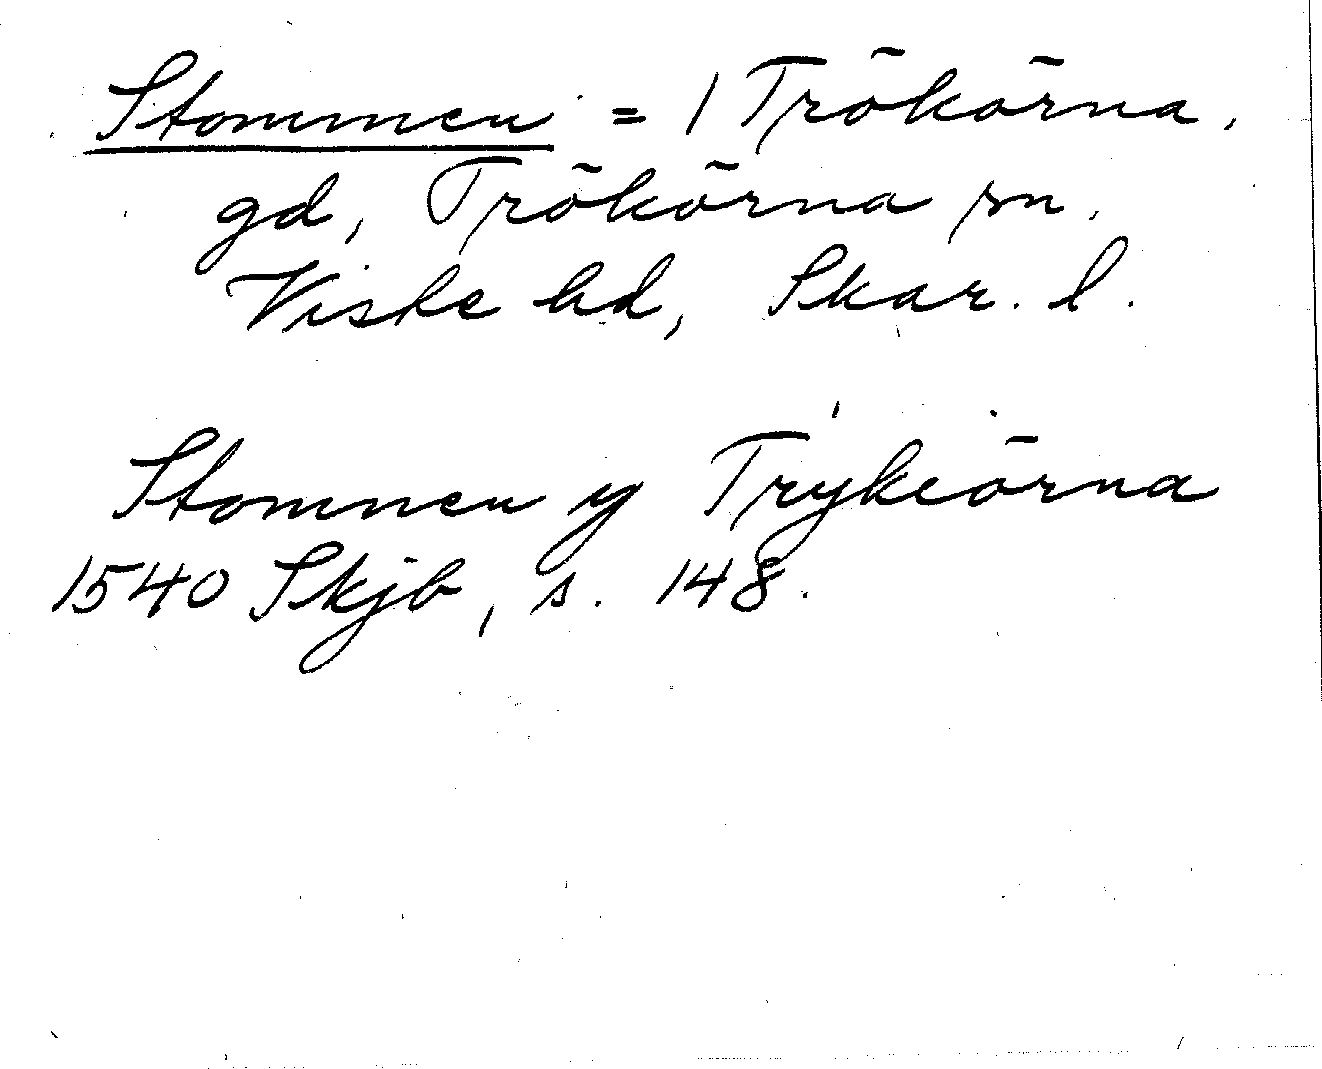 Stommen = 1 Trökörna,
gd, Trökörna sn,
Viste hd, Skar. l.
Stomnen y Trykeörna
1540 Skjb, s. 148.